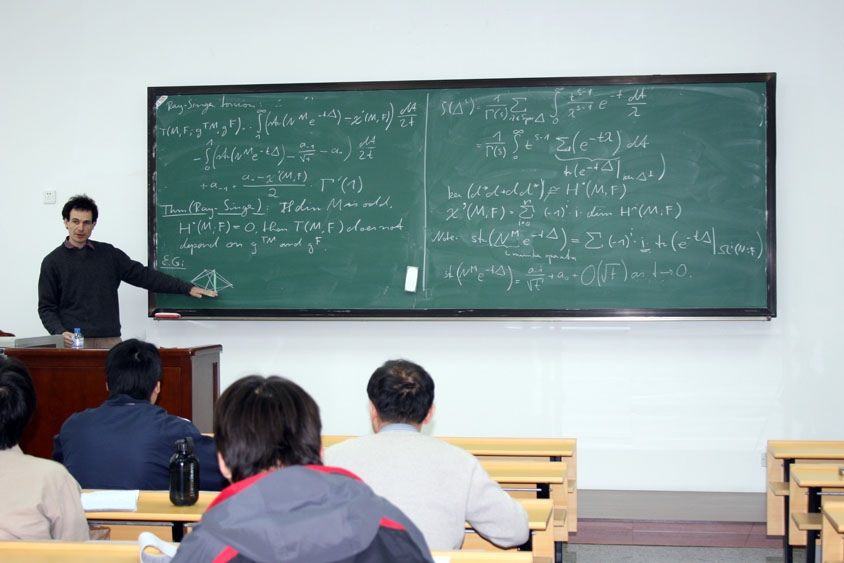 Ray-Singer torsion:
T(M,F; g^TM, g^F) ... ∫_0^1 (str(N^M e^{-tΔ}) - χ'(M,F)) dt/2t
- ∫_0^1 (str(N^M e^{-tΔ}) - a_{-1}/√t - a_0) dt/2t
+ a_{-1} + (a_0 - χ'(M,F))/2 · Γ'(1)
Thm (Ray-Singer): If dim M is odd,
H^•(M,F) = 0, then T(M,F) does not
depend on g^TM and g^F.
E.G:
ζ(Δ^s) = 1/Γ(s) Σ_{λ∈Spec Δ} ∫_0^∞ t^{s-1}/λ^{s-1} e^{-t} dt/λ
= 1/Γ(s) ∫_0^∞ t^{s-1} Σ(e^{-tλ}) dt
tr(e^{-tΔ}|_{ker Δ^⊥})
ker(d*d+dd*) ≅ H^•(M,F)
χ'(M,F) = Σ_{i=0}^n (-1)^i · i · dim H^i(M,F)
Note: str(N^M e^{-tΔ}) = Σ (-1)^i · i · tr(e^{-tΔ}|_{Ω^i(M,F)})
number operator
str(N^M e^{-tΔ}) = a_{-1}/√t + a_0 + O(√t) as t→0.